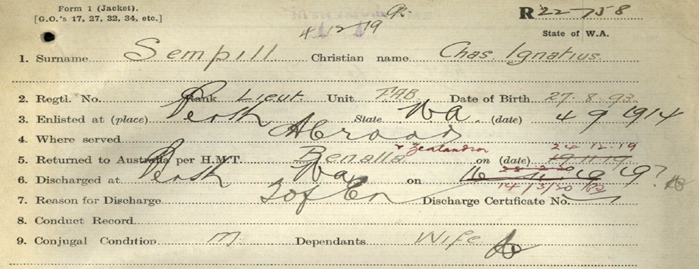 Form 1 (Jacket).
[G.O.'s 17, 27, 32, 34, etc.]
R 22758
4 12 19
State of W.A.
1. Surname Sempill Christian name Chas. Ignatius
2. Regtl. No. Rank Lieut. Unit Date of Birth 27.8.93
3. Enlisted at (place) Perth State Wa (date) 4 9 1914
4. Where served Abroad
& Zealandia 24-12-19
5. Returned to Australia per H.M.T. Benalla on (date) 19.11.19
6. Discharged at Perth Wa on 16 11 1919?
14/3/20
7. Reason for Discharge Discharge Certificate No.
8. Conduct Record
9. Conjugal Condition M Dependants Wife